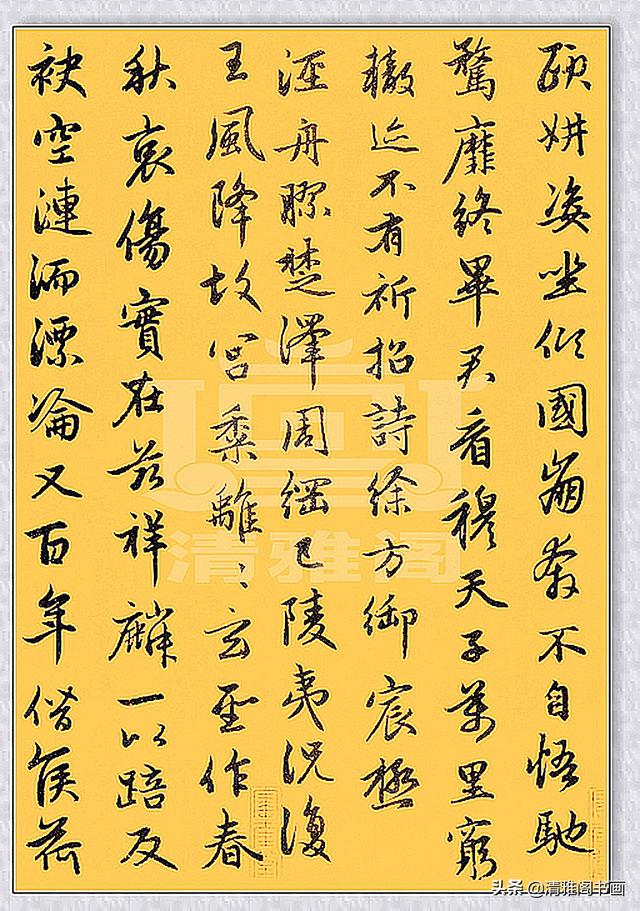 頤妍姿坐傾國崩奔不自悟馳
騖靡終畢君看穆天子萬里窮
轍迹不有祈招詩徐方御宸極
涇舟膠楚澤周綱已陵夷況復
王風降故宮黍離〻玄聖作春
秋哀傷實在兹祥麟一以踣反
袂空漣洏漂淪又百年僭侯荷
清雅阁
头条 @清雅阁书画